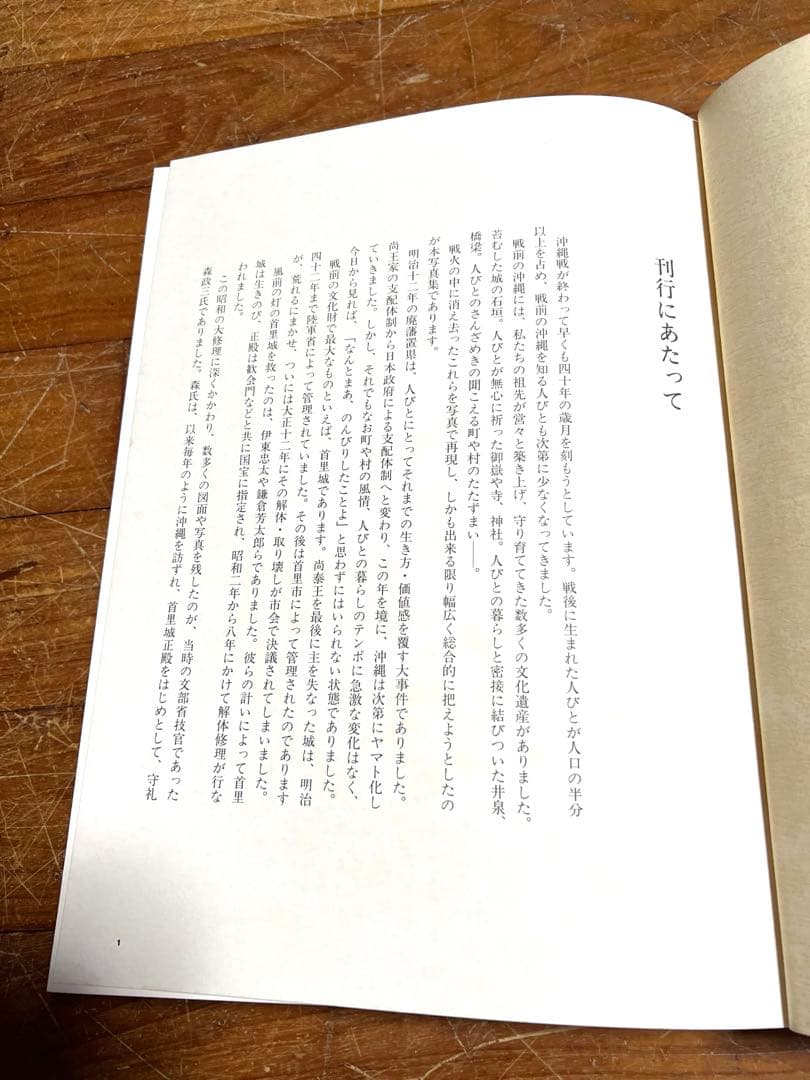 刊行にあたって
沖縄戦が終わって早くも四十年の歳月を刻もうとしています。戦後に生まれた人びとが人口の半分
以上を占め、戦前の沖縄を知る人びとも次第に少なくなってきました。
戦前の沖縄には、私たちの祖先が営々と築き上げ、守り育ててきた数多くの文化遺産がありました。
苔むした城の石垣。人びとが無心に祈った御嶽や寺、神社。人びとの暮らしと密接に結びついた井泉、
橋梁。人びとのさんざめきの聞こえる町や村のたたずまい――。
戦火の中に消え去ったこれらを写真で再現し、しかも出来る限り幅広く総合的に把えようとしたの
が本写真集であります。
明治十二年の廃藩置県は、人びとにとってそれまでの生き方・価値感を覆す大事件でありました。
尚王家の支配体制から日本政府による支配体制へと変わり、この年を境に、沖縄は次第にヤマト化し
ていきました。しかし、それでもなお町や村の風情、人びとの暮らしのテンポに急激な変化はなく、
今日から見れば、「なんとまあ、のんびりしたことよ」と思わずにはいられない状態でありました。
戦前の文化財で最大なものといえば、首里城であります。尚泰王を最後に主を失なった城は、明治
四十二年まで陸軍省によって管理されていました。その後は首里市によって管理されたのであります
が、荒れるにまかせ、ついには大正十二年にその解体・取り壊しが市会で決議されてしまいました。
風前の灯の首里城を救ったのは、伊東忠太や鎌倉芳太郎らでありました。彼らの計いによって首里
城は生きのび、正殿は歓会門などと共に国宝に指定され、昭和二年から八年にかけて解体修理が行な
われました。
この昭和の大修理に深くかかわり、数多くの図面や写真を残したのが、当時の文部省技官であった
森政三氏でありました。森氏は、以来毎年のように沖縄を訪ずれ、首里城正殿をはじめとして、守礼
1